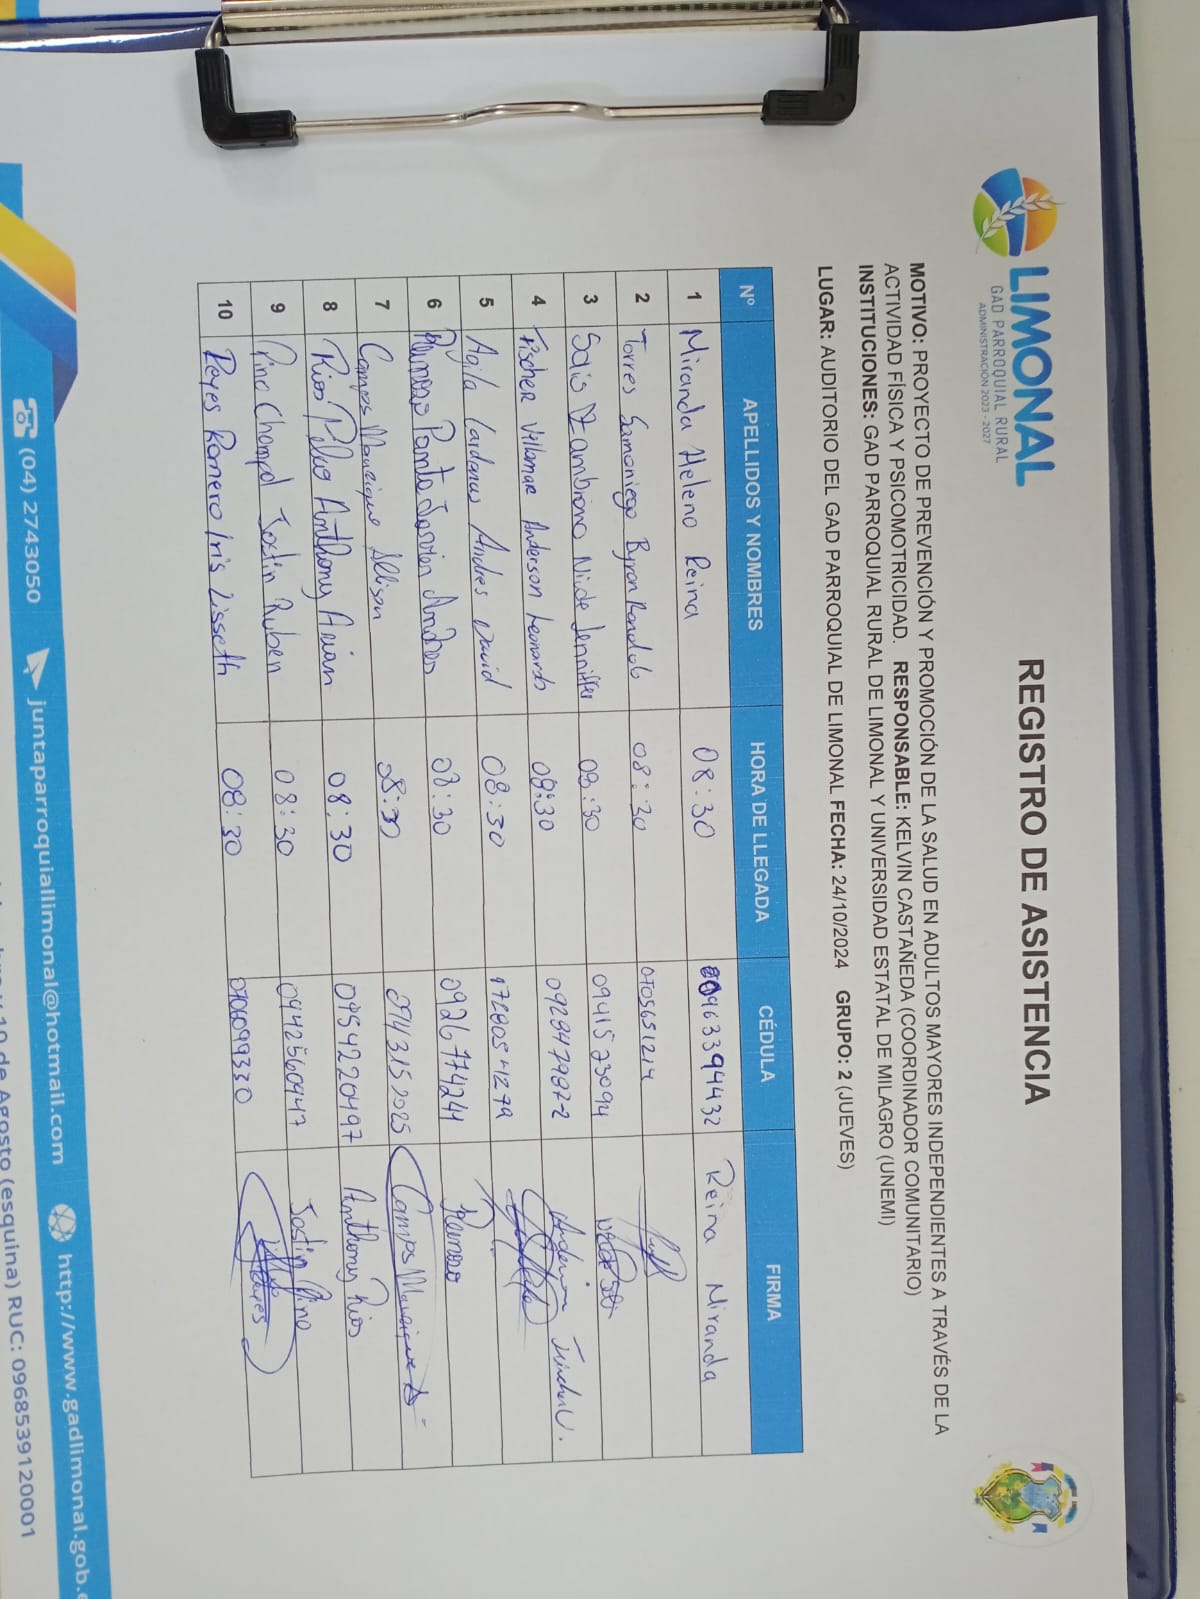 LIMONAL
GAD PARROQUIAL RURAL
ADMINISTRACIÓN 2023 - 2027
REGISTRO DE ASISTENCIA
MOTIVO: PROYECTO DE PREVENCIÓN Y PROMOCIÓN DE LA SALUD EN ADULTOS MAYORES INDEPENDIENTES A TRAVÉS DE LA
ACTIVIDAD FÍSICA Y PSICOMOTRICIDAD. RESPONSABLE: KELVIN CASTAÑEDA (COORDINADOR COMUNITARIO)
INSTITUCIONES: GAD PARROQUIAL RURAL DE LIMONAL Y UNIVERSIDAD ESTATAL DE MILAGRO (UNEMI)
LUGAR: AUDITORIO DEL GAD PARROQUIAL DE LIMONAL FECHA: 24/10/2024 GRUPO: 2 (JUEVES)
Nº APELLIDOS Y NOMBRES HORA DE LLEGADA CÉDULA FIRMA
1 Miranda Heleno Reina 08:30 0963394432 Reina Miranda
2 Torres Samaniego Byron 08:30
3 Jenniffer 08:30 0941523094
4 Fischer Villamar Anderson Leonardo 08:30 Anderson
5 Agila Andres David 08:30
6 08:30 0926774241
7 Campos Manrique Allison 08:30 Campos Manrique A
8 Rios Anthony 08:30 0954220497 Anthony Rios
9 Pino Jostin Ruben 08:30 0942560947 Jostin Pino
10 Reyes Romero Iris Lisseth 08:30 Reyes
(04) 2743050 juntaparroquiallimonal@hotmail.com http://www.gadlimonal.gob.
10 de Agosto (esquina) RUC: 0968539120001